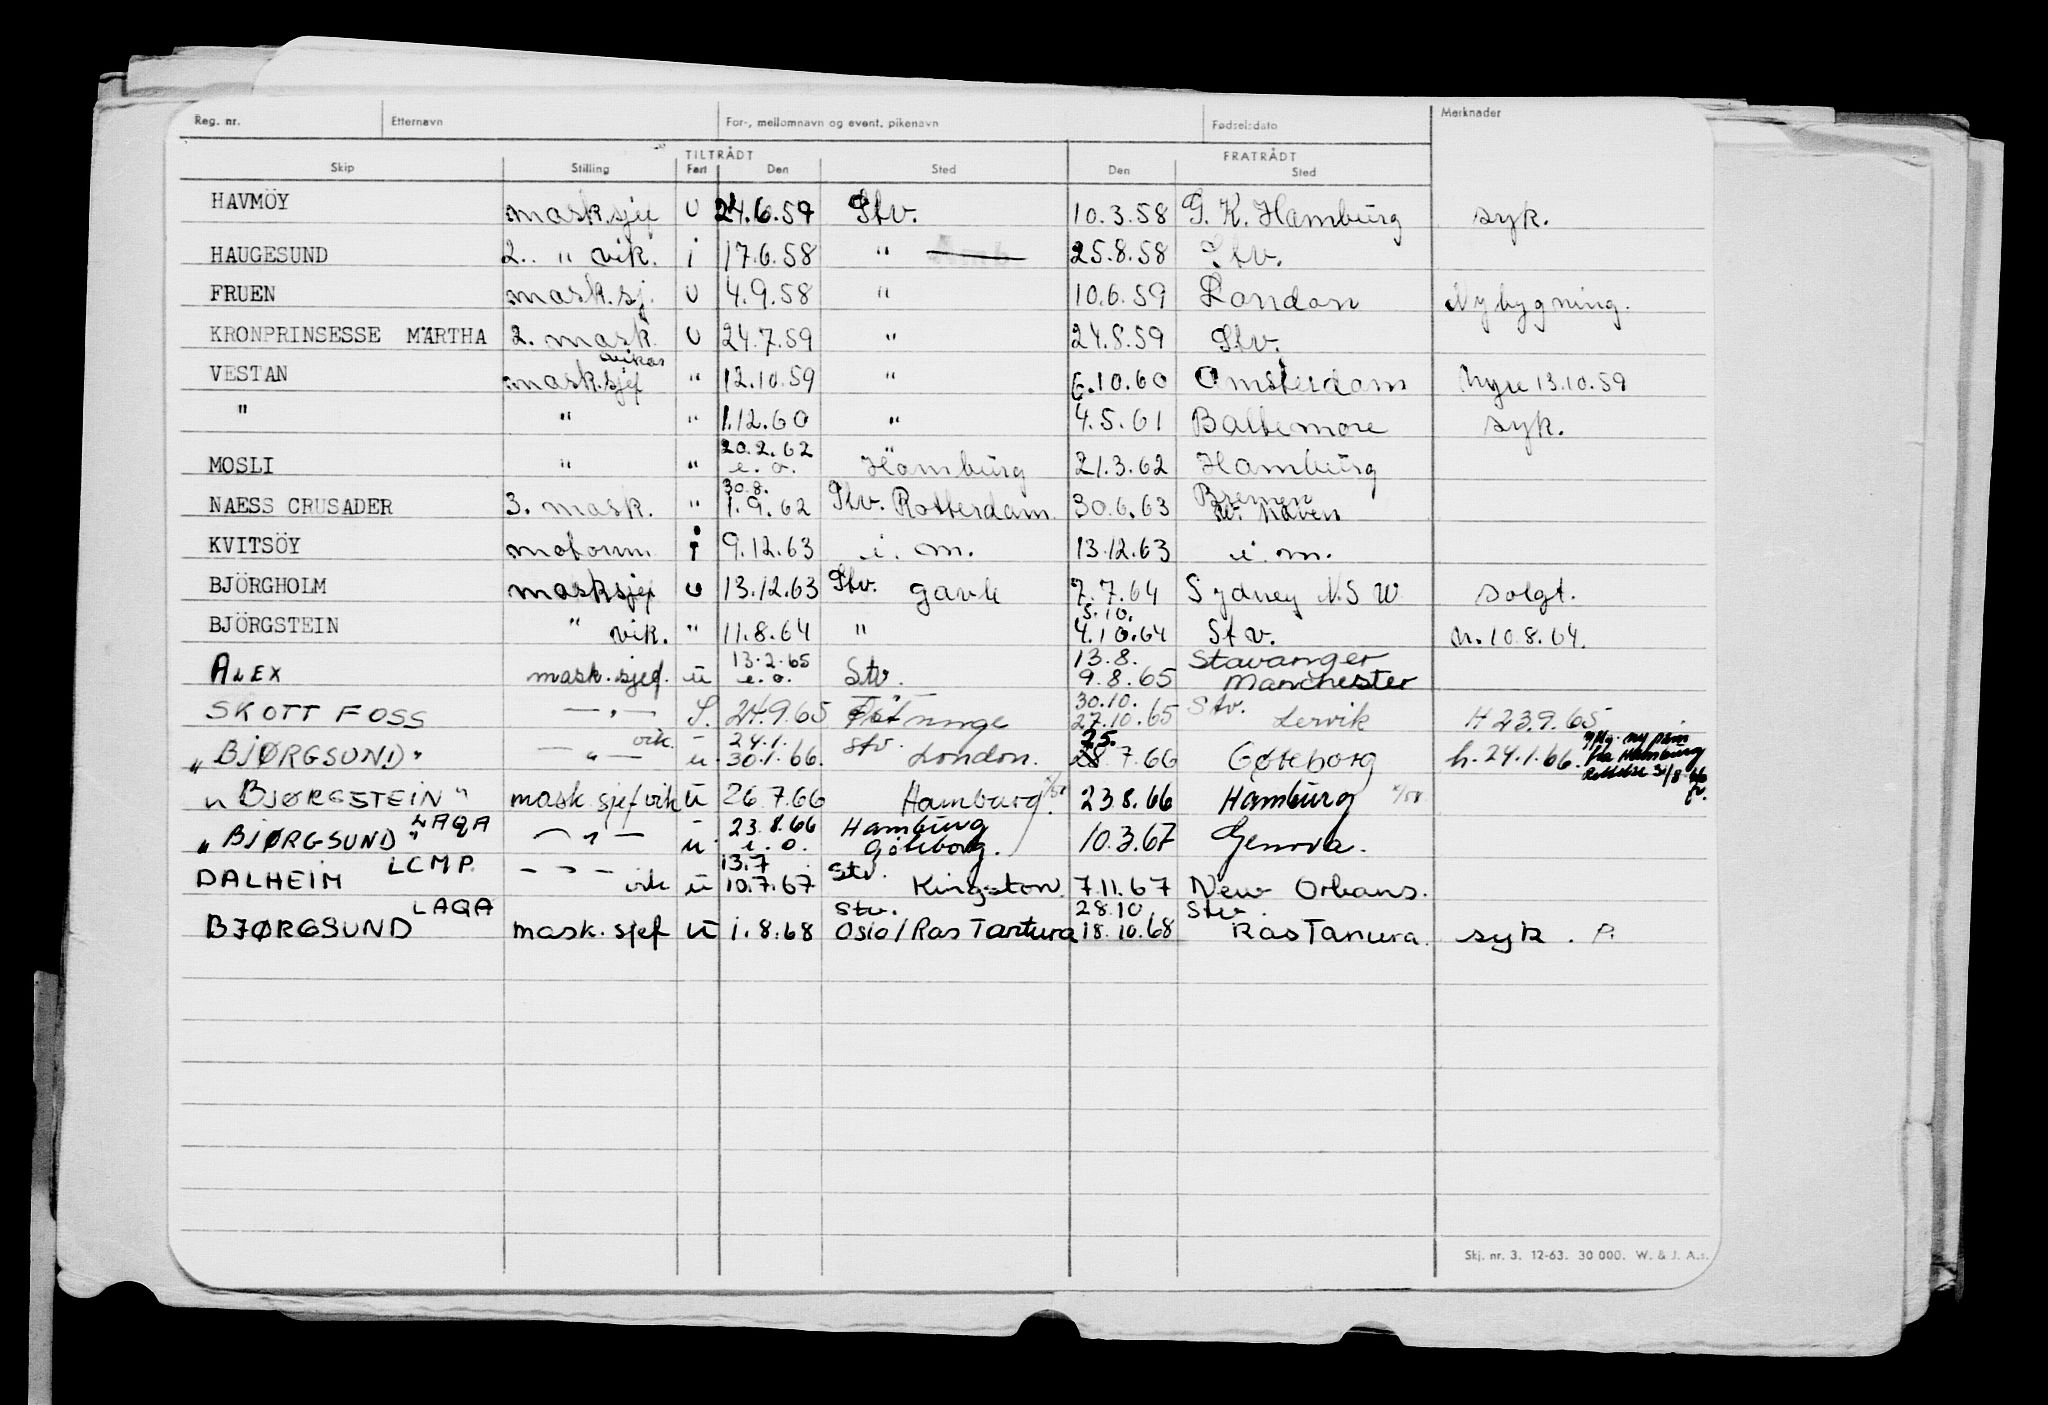 Reg. nr. Etternavn For-, mellomnavn og event. pikenavn Fødselsdato Merknader
TILTRÅDT FRATRÅDT
Skip Stilling Fart Den Sted Den Sted
HAVMÖY mask.sjef u 24.6.59 Stv. 10.3.58 G.K. Hamburg syk.
HAUGESUND 2. " vik. i 17.6.58 " 25.8.58 Stv.
FRUEN mask.sj. u 4.9.58 " 10.6.59 London Nybygning.
KRONPRINSESSE MÄRTHA 2. mask. u 24.7.59 " 24.8.59 Stv.
VESTAN mask.sjef vikar " 12.10.59 " 6.10.60 Amsterdam hyre 13.10.59
" " " 1.12.60 " 4.5.61 Baltemore syk.
MOSLI " " 20.2.62 e.o. Hamburg 21.3.62 Hamburg
NAESS CRUSADER 3. mask. " 30.8. 1.9.62 Stv. Rotterdam 30.6.63 Bremen haven
KVITSÖY motorm. i 9.12.63 i.m. 13.12.63 i.m.
BJÖRGHOLM masksjef u 13.12.63 Stv. gavle 7.7.64 Sydney N.S W solgt.
BJÖRGSTEIN " vik. " 11.8.64 " 5.10. 4.10.64 Stv. h. 10.8.64.
ALEX mask.sjef. u 13.2.65 e.o. Stv. 13.8. 9.8.65 Stavanger Manchester
SKOTT FOSS — " — S. 24.9.65 30.10. 27.10.65 Stv. Lervik H 23.9.65
"BJØRGSUND" — " — vik. u 24.1. 30.1.66. Stv. London. 25. 28.7.66 Gøteborg h. 24.1.66.
"BJØRGSTEIN" mask sjef vik u 26.7.66 Hamburg. 23.8.66 Hamburg
"BJØRGSUND" LAQA — " — u 23.8.66 e.o. Hamburg Göteborg. 10.3.67 Genova.
DALHEIM LCMP. — " — vik u 13.7 10.7.67 Stv. Kingston 7.11.67 New Orleans.
BJØRGSUND LAQA mask.sjef u 1.8.68 Stv. Oslo/Ras Tantura 28.10 18.10.68 Stv. Ras Tanura. syk. P.
Skj. nr. 3. 12-63. 30 000. W. & J. A.s.